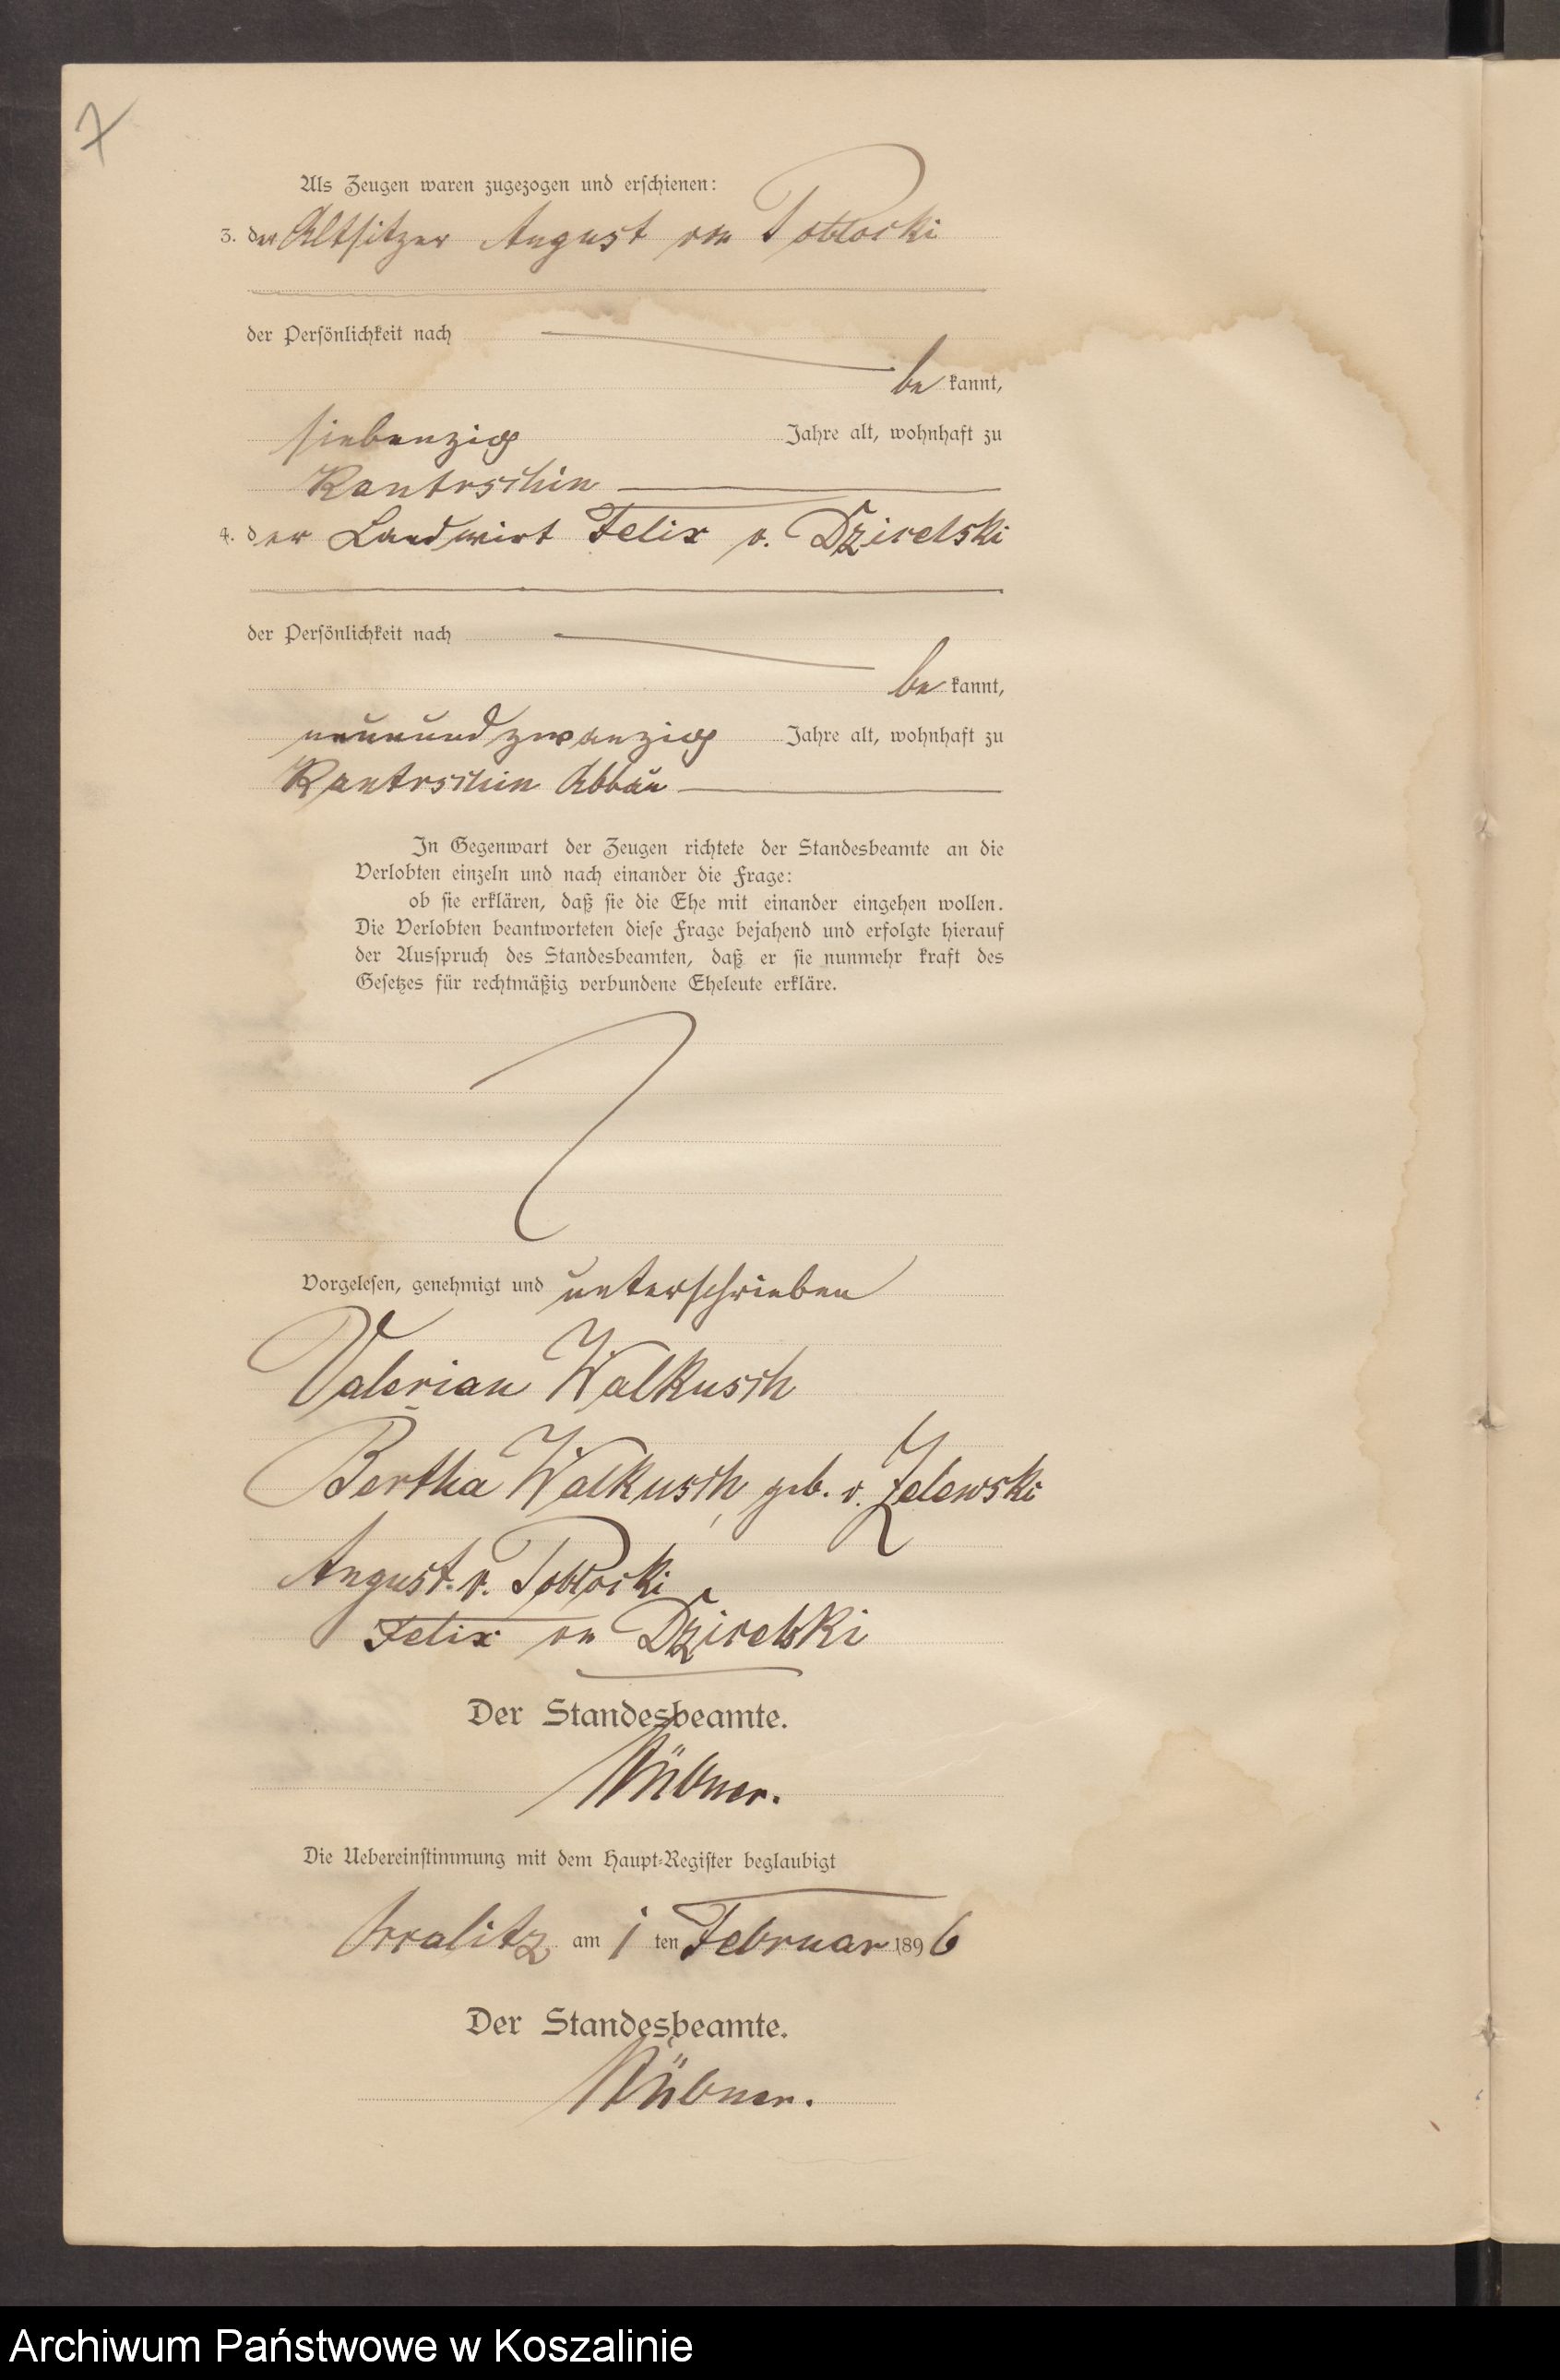 7
Als Zeugen waren zugezogen und erschienen:
3. der Altsitzer August von Pobłocki
der Persönlichkeit nach
be kannt,
siebenzig Jahre alt, wohnhaft zu
Kantrschin
4. der Landwirt Felix v. Dzircelski
der Persönlichkeit nach
be kannt,
neunundzwanzig Jahre alt, wohnhaft zu
Kantrschin Abbau
In Gegenwart der Zeugen richtete der Standesbeamte an die
Verlobten einzeln und nach einander die Frage:
ob sie erklären, daß sie die Ehe mit einander eingehen wollen.
Die Verlobten beantworteten diese Frage bejahend und erfolgte hierauf
der Ausspruch des Standesbeamten, daß er sie nunmehr kraft des
Gesetzes für rechtmäßig verbundene Eheleute erkläre.
Vorgelesen, genehmigt und unterschrieben
Valerian Walkusch
Bertha Walkusch, geb. v. Zelewski
August v. Pobłocki
Felix von
Der Standesbeamte.
Die Uebereinstimmung mit dem Haupt-Register beglaubigt
am 1 ten Februar 1896
Der Standesbeamte.
Archiwum Państwowe w Koszalinie